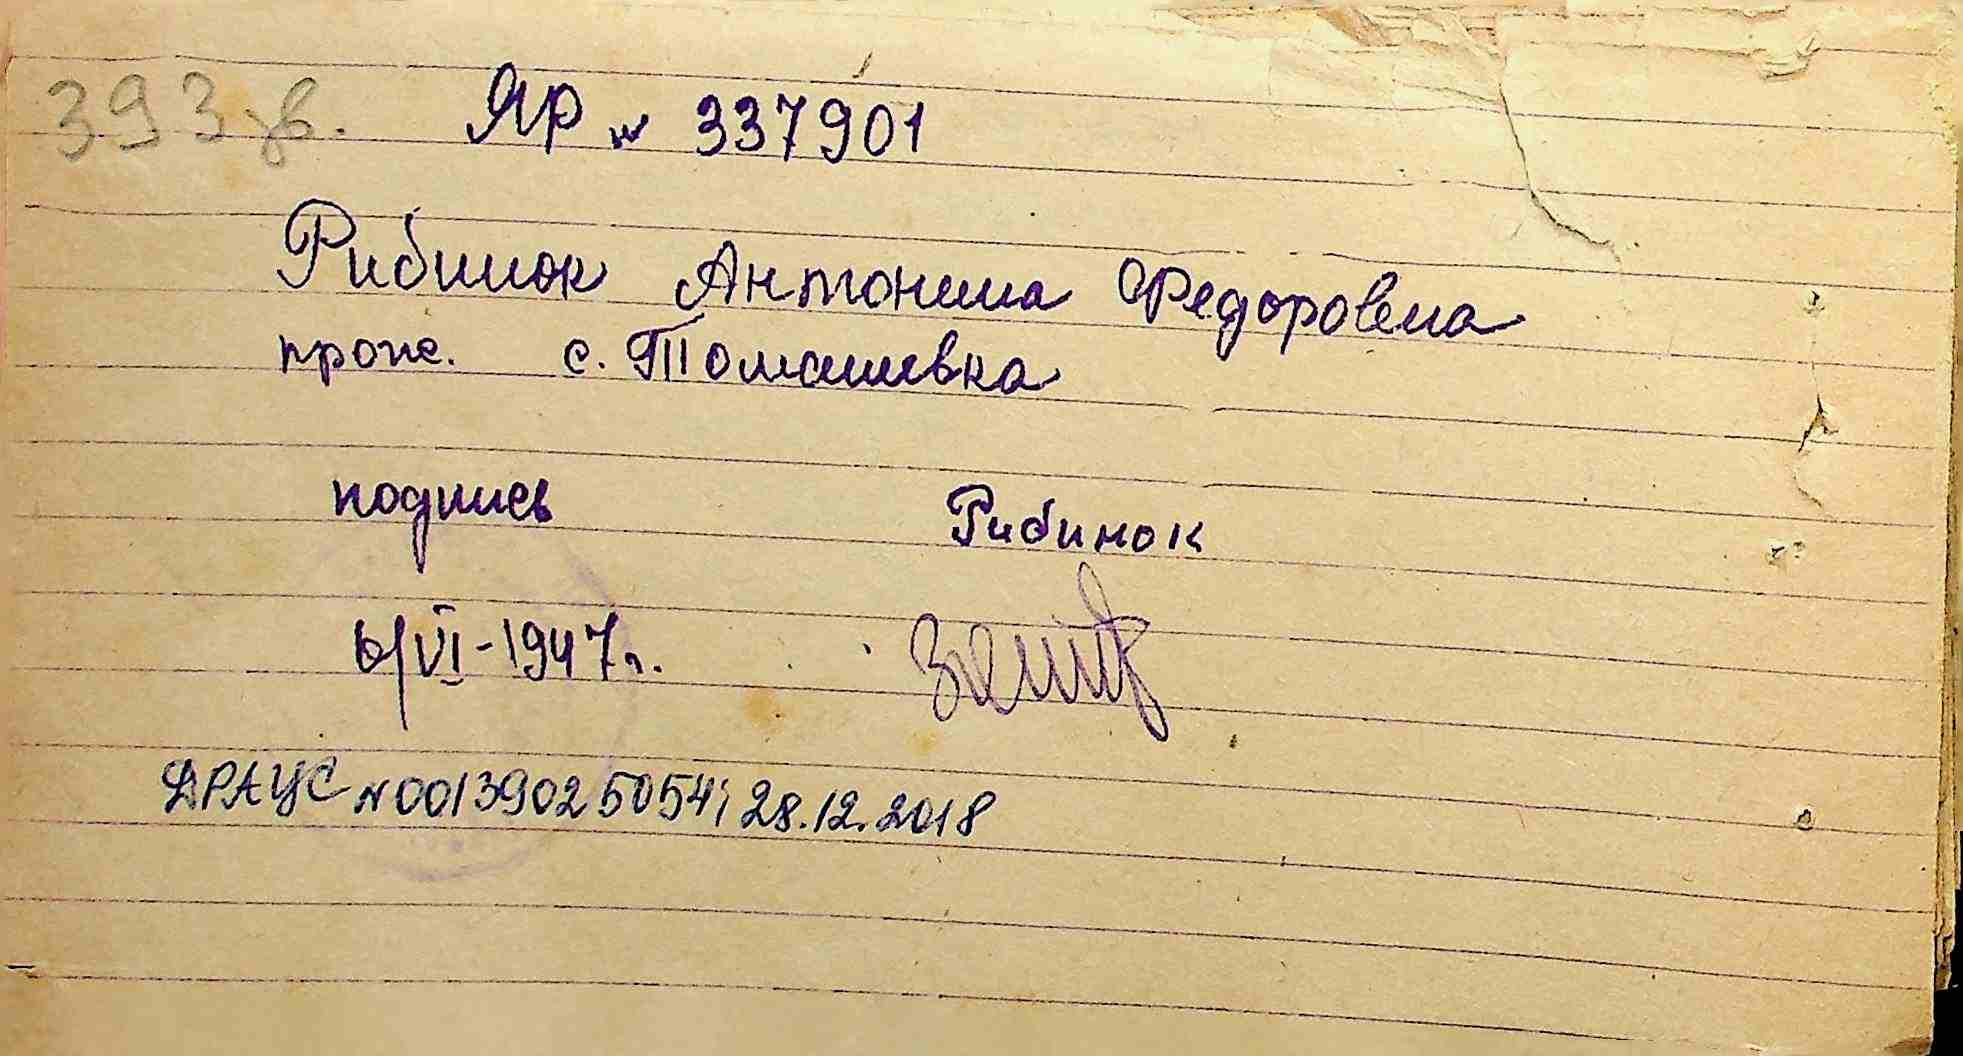 393 зв. ЯР № 337901
Рибинок Антонина Федоровна
прож. с. Томашевка
подпись Рибинок
6/VI-1947г.
ДРАЦС №00139025054; 28.12.2018